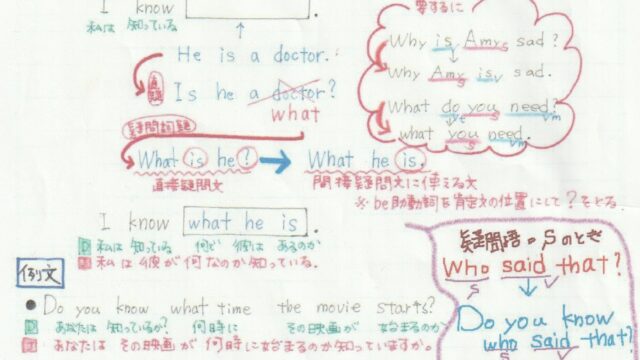 I know
私は 知っている
He is a doctor.
Is he a doctor?
what
疑問詞疑
What is he ?
What he is.
直接疑問文
間接疑問文に使える文
※ be助動詞を肯定文の位置にして？をとる
I know what he is .
私は 知っている 何で 彼は あるのか
私は彼が何なのか知っている。
例文
● Do you know what time the movie starts?
あなたは 知っているか？ 何時に その映画が 始まるのか
あなたは その映画が 何時に始まるのか知っていますか。
要するに
Why is Amy sad?
S
Why Amy is sad.
S V
What do you need?
S Vm
what you need.
S Vm
疑問語 = Sのとき
Who said that?
S
Do you know
who said that?
S